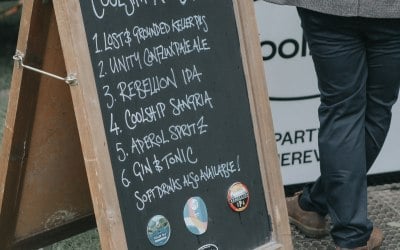 COOLSHIP
1. LOST & GROUNDED KELLER PILS
2. UNITY CONFLUX PALE ALE
3. REBELLION IPA
4. COOLSHIP SANGRIA
5. APEROL SPRITZ
6. GIN & TONIC
SOFT DRINKS ALSO AVAILABLE!
ool
PART
EREV